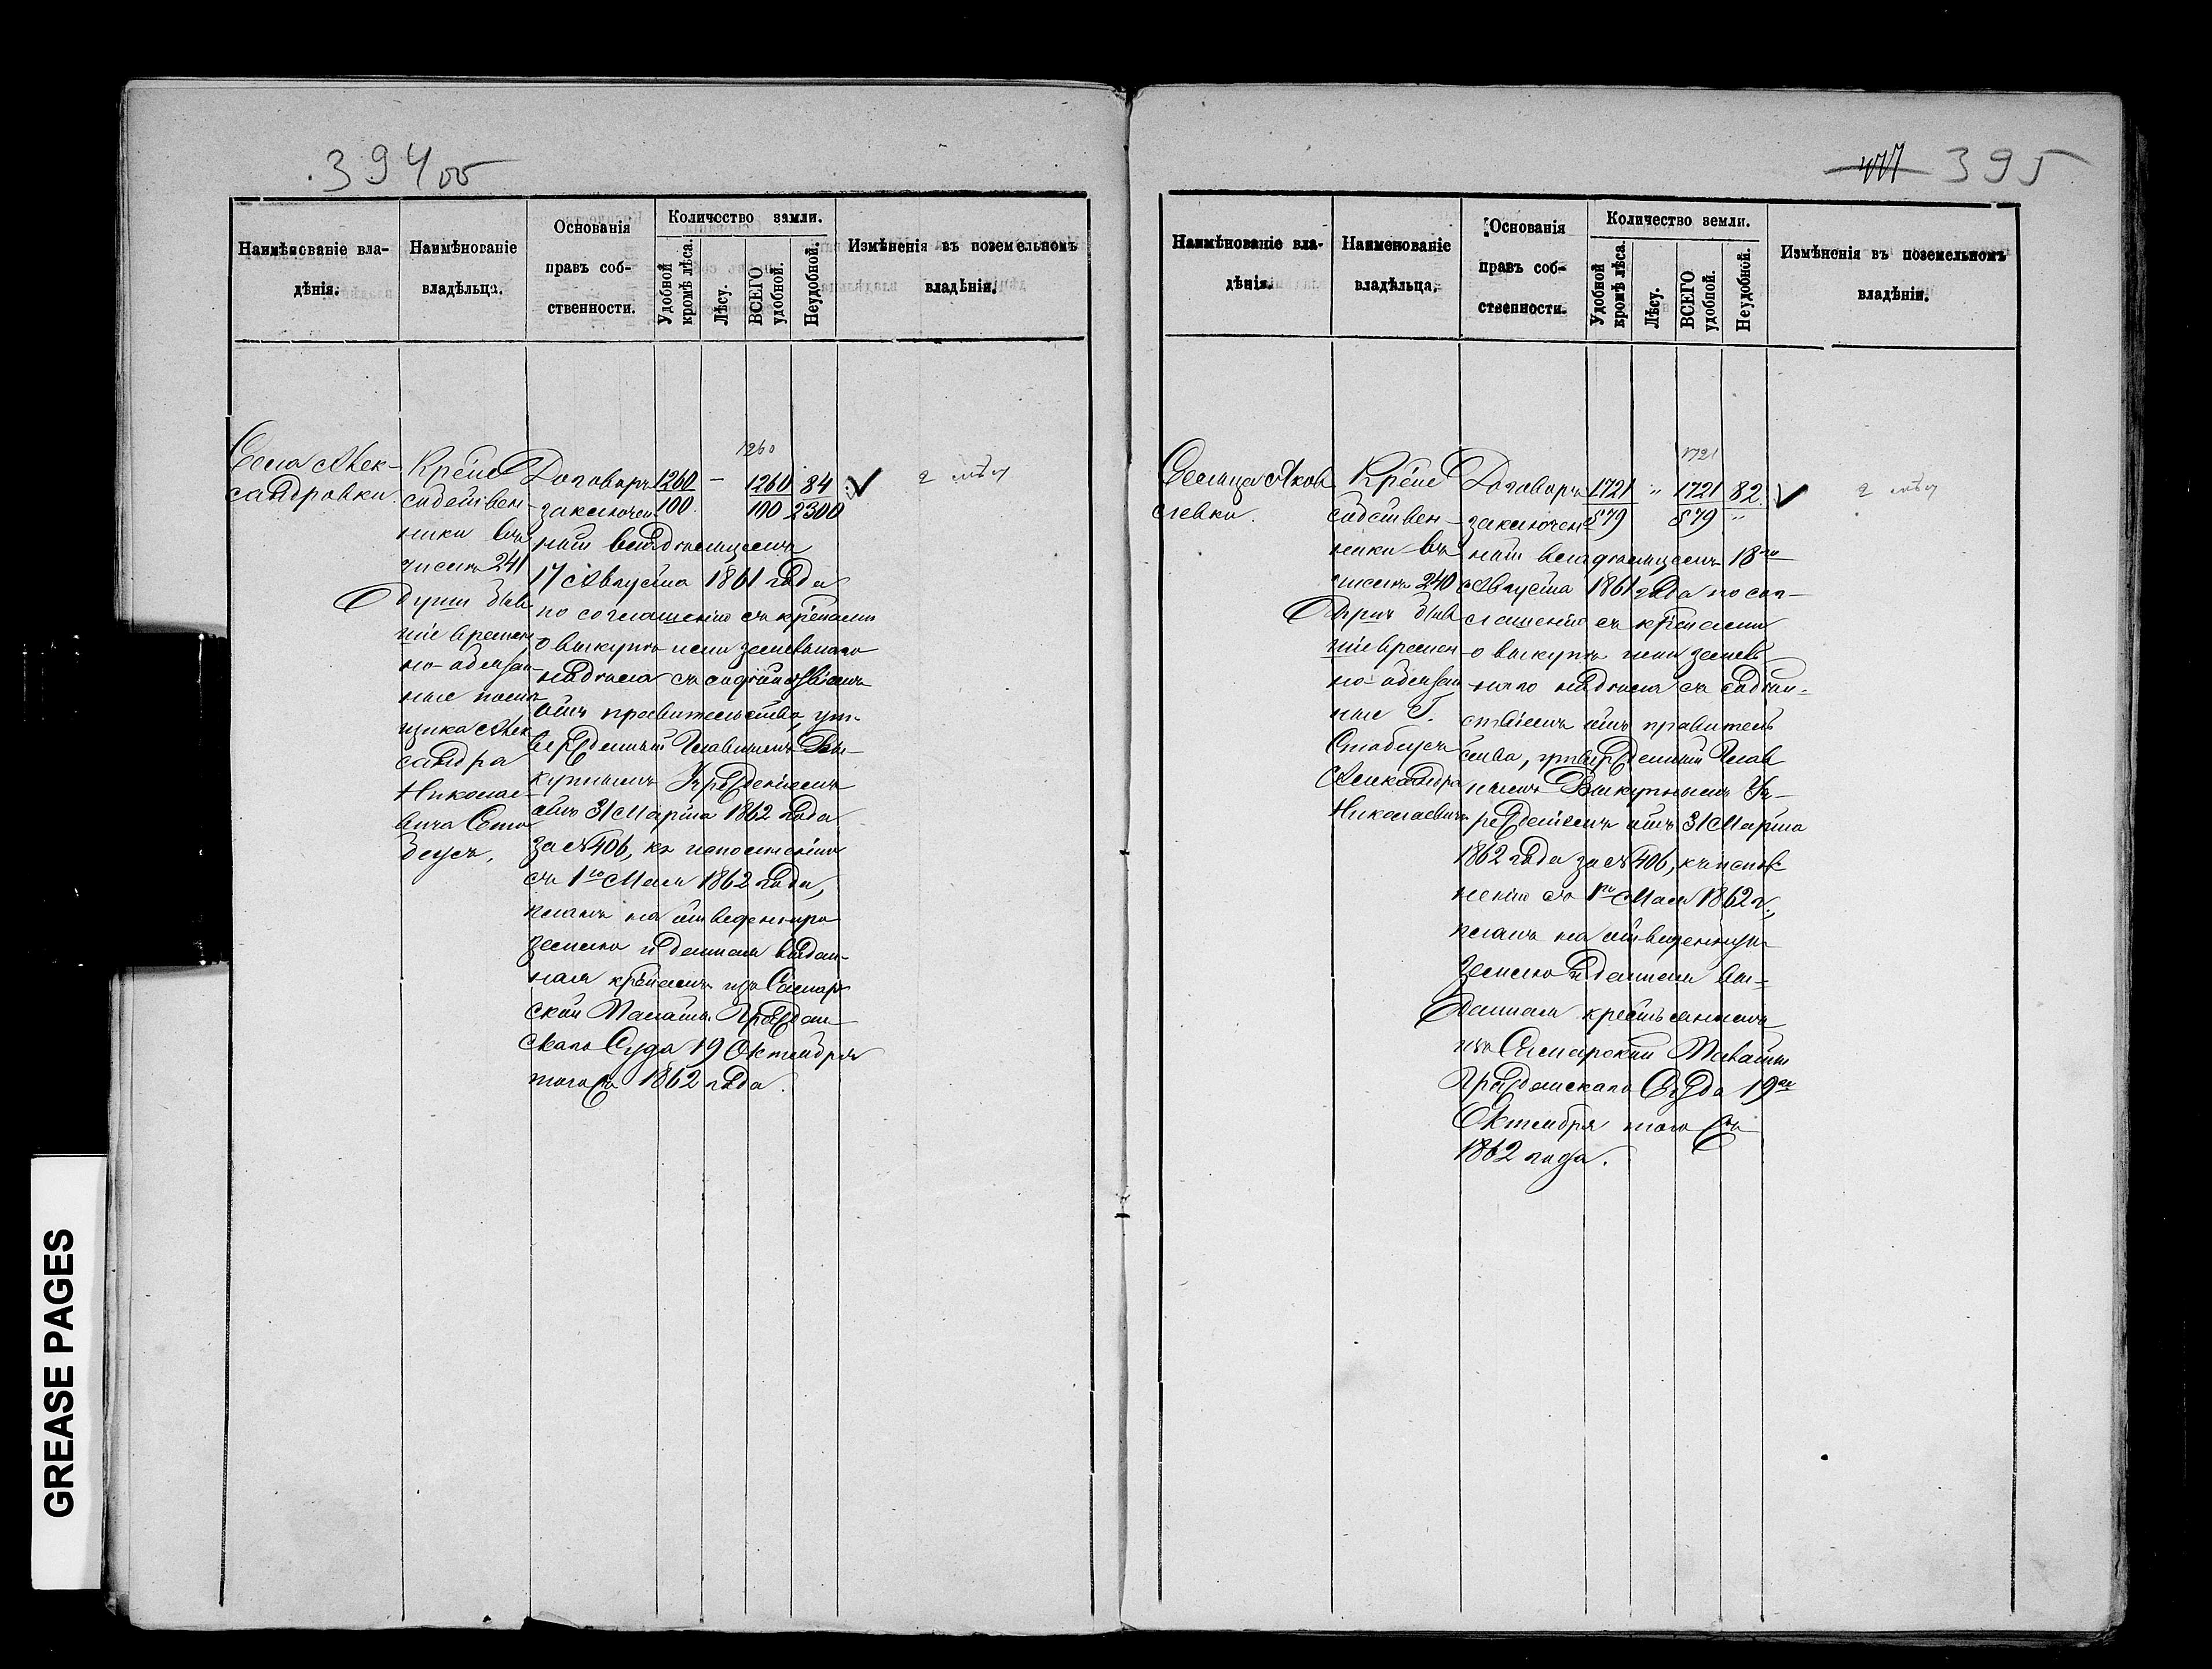 394 об
Наимѣнованіе вла-
дѣнія.
Наимѣнованіе
владѣльца.
Основанія
правъ соб-
ственности.
Количество земли.
Удобной
кромѣ лѣса.
Лѣсу.
ВСЕГО
удобной.
Неудобной.
Измѣненія въ поземельномъ
владѣніи.
Села Алек-
сандровки.
Крѣпс
собствен-
ники въ
числѣ 241
души быв
шіе времен
но-обязан-
ные помѣ
щика Алек
сандра
Николае-
вича
Договоръ
заключен-
ный владѣльцемъ
17 Августа 1861 года
по соглашенію съ
о выкупѣ ими земельнаго
надѣла съ содѣйствіемъ
отъ правительства, ут-
вержденный Главнымъ Вы-
купнымъ Учрежденіемъ
отъ 31 Марта 1862 года
за № 406, къ исполненію
съ 1го Мая 1862 года,
планъ на отведенную
землю и данная выдан-
ная изъ Самар
ской Палаты Граждан-
скаго Суда 19 Октября
тогожъ 1862 года.
1260
1260 – 1260 84
100 100 2300
395
Наименованіе вла-
дѣнія.
Наименованіе
владѣльца.
Основанія
правъ соб-
ственности.
Количество земли.
Удобной
кромѣ лѣса.
Лѣсу.
ВСЕГО
удобной.
Неудобной.
Измѣненія въ поземельномъ
владѣніи.
Сельца Яков
левки.
Крѣпс
собствен-
ники въ
числѣ 240
душъ быв
шіе времен
но-обязан
ные Г.
Александра
Николаевича
Договоръ
заключен
ный владѣльцемъ 18го
Августа 1861 года по сог-
лашенію съ
о выкупѣ ими земель
наго надѣла съ содѣй-
ствіемъ отъ правитель
ства, утвержденный Глав
нымъ Выкупнымъ Уч-
режденіемъ отъ 31 Марта
1862 года за № 406, къ испол-
ненію съ 1го Мая 1862 г.,
планъ на отведенную
землю и данная вы-
данная крестьянамъ
изъ Самарской Палаты
Гражданскаго Суда 19го
Октября того жъ
1862 года.
1721
1721 " 1721 82
579 579 "
GREASE PAGES